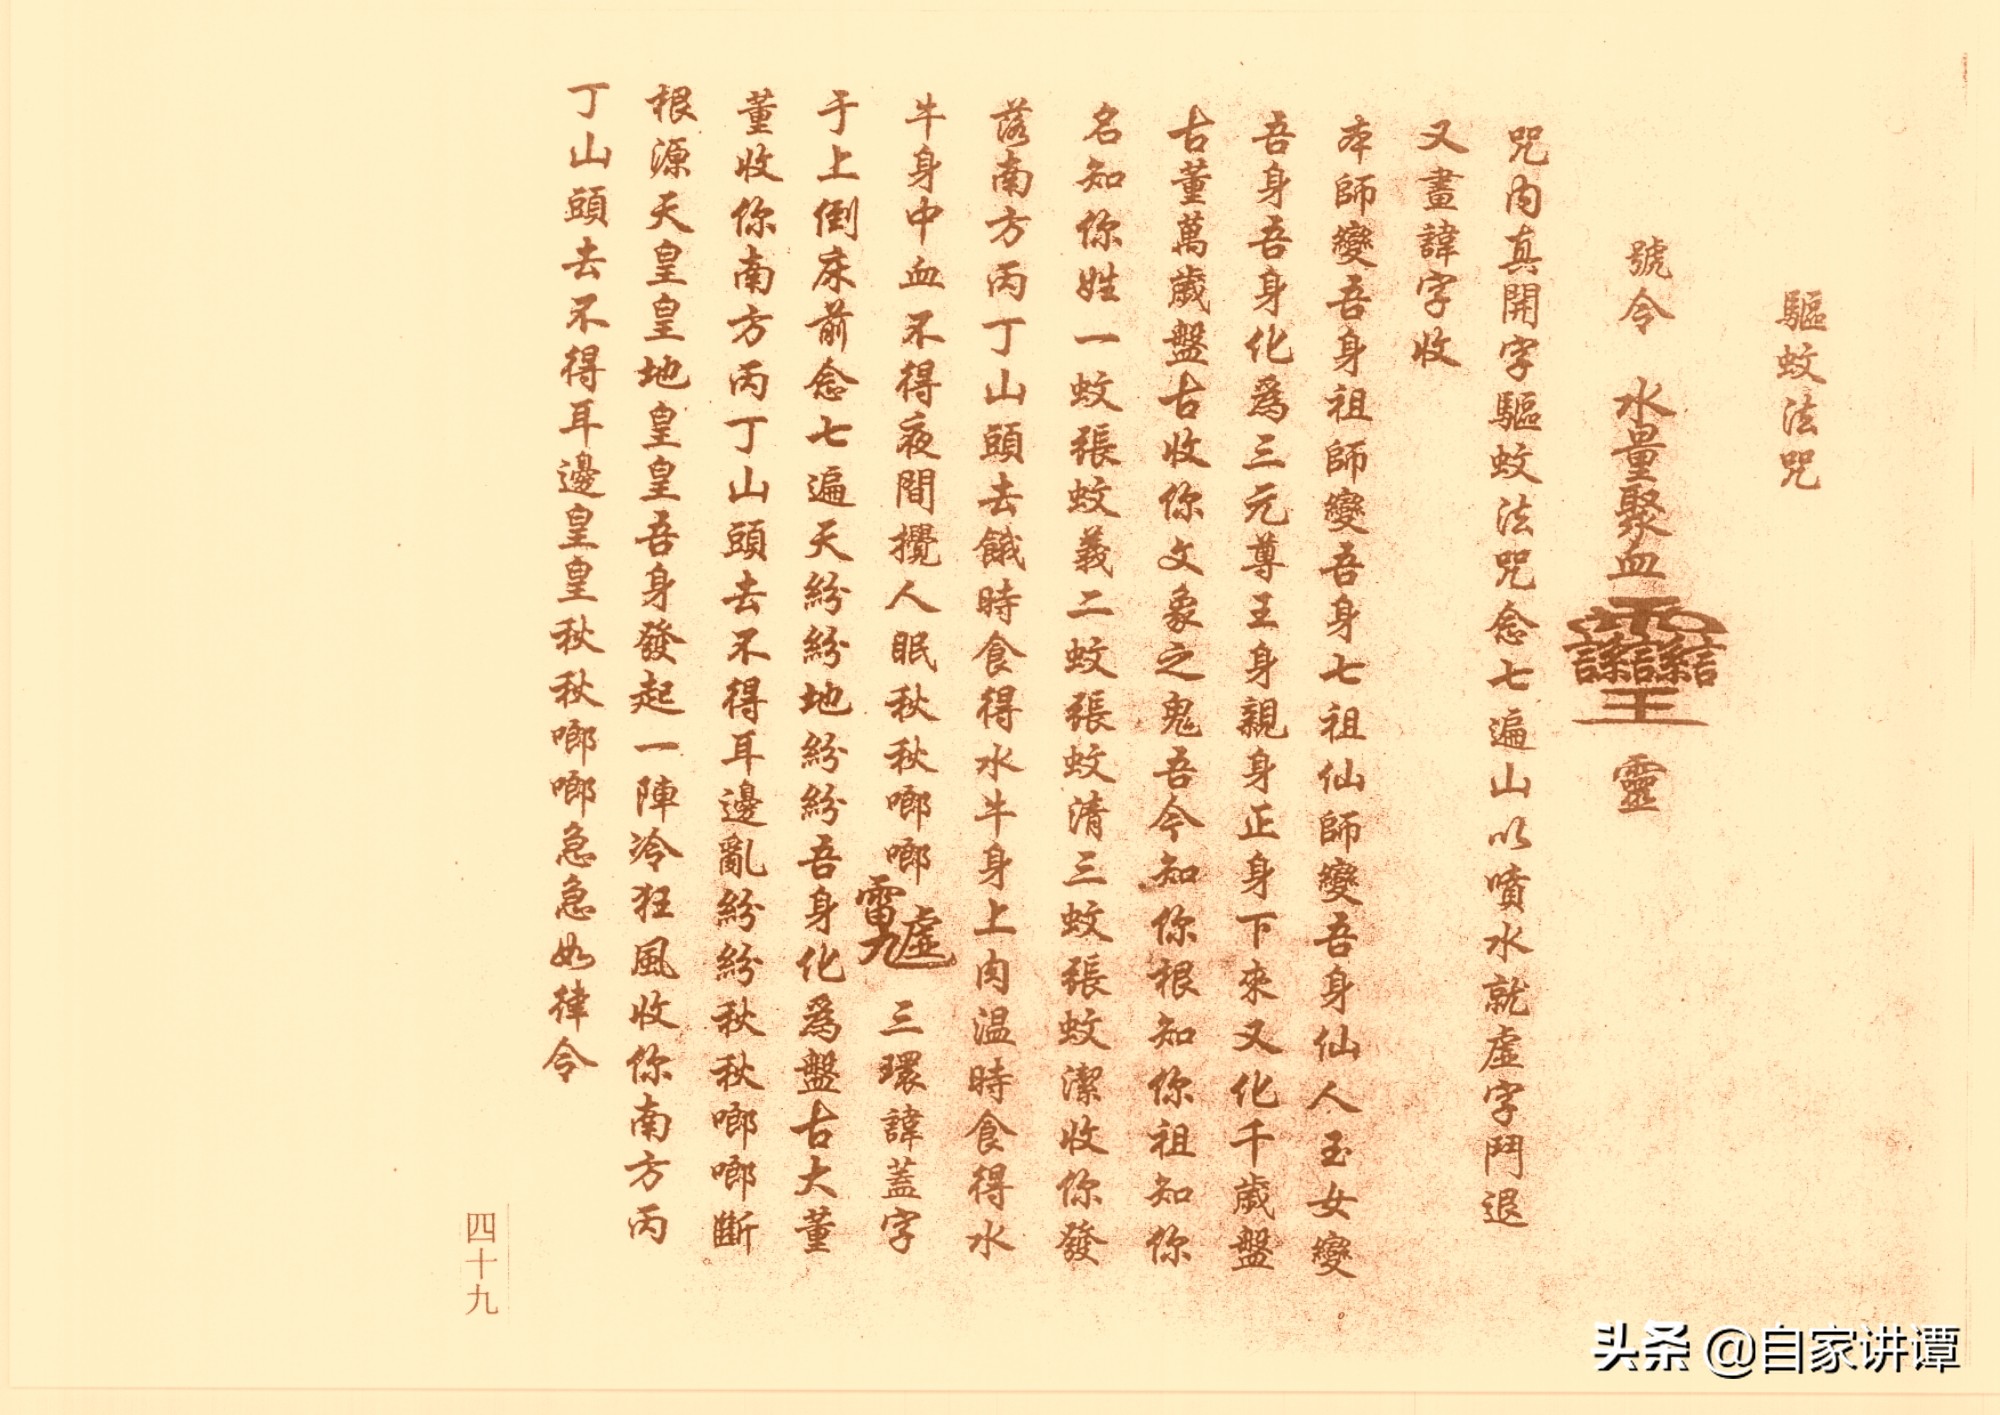 驅蚊法咒
號令 水量聚血 靈
咒內真開字驅蚊法咒念七遍山以噴水就虛字鬥退
又畫諱字收
本師變吾身祖師變吾身七祖仙師變吾身仙人玉女變
吾身吾身化為三元尊王身親身正身下來又化千歲盤
古董萬歲盤古收你文象之鬼吾今知你根知你祖知你
名知你姓一蚊張蚊義二蚊張蚊清三蚊張蚊潔收你發
落南方丙丁山頭去餓時食得水牛身上肉溫時食得水
牛身中血不得夜間攪人眠秋秋啷啷 三環諱蓋字
于上倒床前念七遍天紛紛地紛紛吾身化為盤古大董
董收你南方丙丁山頭去不得耳邊亂紛紛秋秋啷啷斷
根源天皇皇地皇皇吾身發起一陣冷狂風收你南方丙
丁山頭去不得耳邊皇皇秋秋啷啷急急如律令
四十九
头条 @自家讲谭